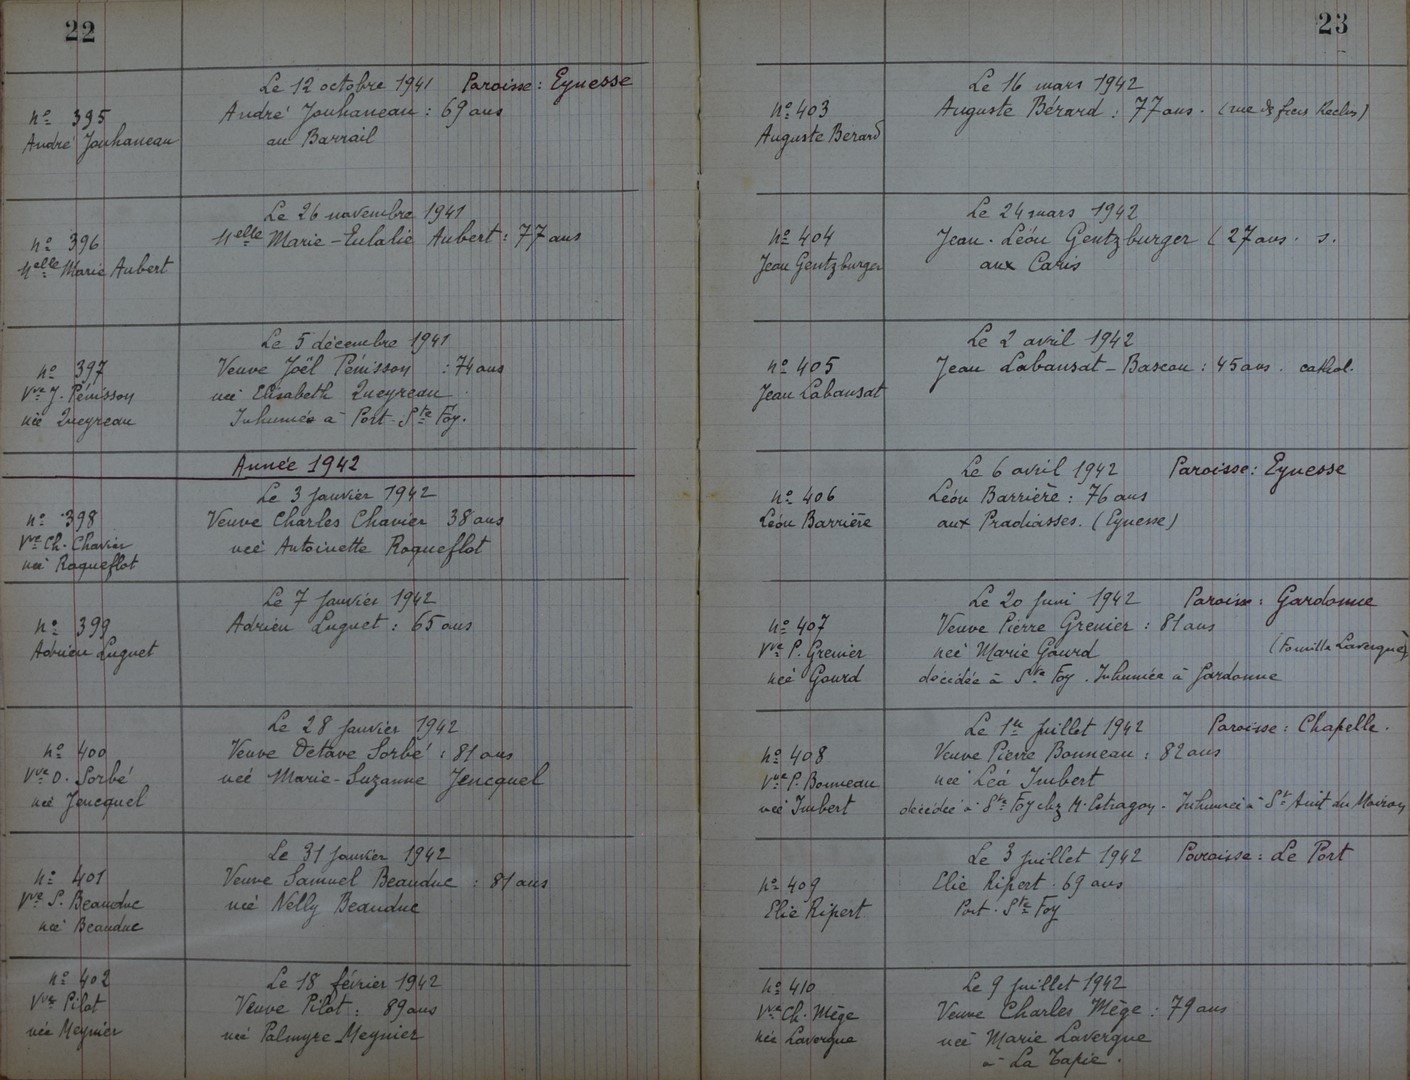 22
Le 12 octobre 1941 Paroisse: Eynesse
nº 395
André Jouhaneau : 69 ans
André Jouhaneau
au Barrail
Le 26 novembre 1941
nº 396
Melle Marie-Eulalie Aubert : 77 ans
Melle Marie Aubert
Le 5 décembre 1941
nº 397
Veuve Joël Pénisson : 74 ans
Vve J. Pénisson
née Elisabeth Queyreau
née Queyreau
Inhumée à Port-Ste Foy.
Année 1942
Le 3 Janvier 1942
nº 398
Veuve Charles Chavier 38 ans
Vve Ch. Chavier
née Antoinette Roqueflot
née Roqueflot
Le 7 Janvier 1942
nº 399
Adrien Luguet : 65 ans
Adrien Luguet
Le 28 Janvier 1942
nº 400
Veuve Octave Sorbé : 81 ans
Vve O. Sorbé
née Marie-Suzanne Jencquel
née Jencquel
Le 31 Janvier 1942
nº 401
Veuve Samuel Beauduc : 81 ans
Vve S. Beauduc
née Nelly Beauduc
née Beauduc
Le 18 février 1942
nº 402
Veuve Pilot : 89 ans
Vve Pilot
née Palmyre Meynier
née Meynier
23
Le 16 mars 1942
nº 403
Auguste Bérard : 77 ans. (rue des frères Reclus)
Auguste Berard
Le 24 mars 1942
nº 404
Jean-Léon Gentzburger (27 ans. s.
Jean Gentzburger
aux Caris
Le 2 avril 1942
nº 405
Jean Labansat-Bascou : 45 ans. cathol.
Jean Labansat
Le 6 avril 1942 Paroisse: Eynesse
nº 406
Léon Barrière : 76 ans
Léon Barrière
aux Pradiasses. (Eynesse)
Le 20 Juin 1942 Paroisse: Gardonne
nº 407
Veuve Pierre Grenier : 81 ans
Vve P. Grenier
née Marie Gourd (Famille Lavergne)
née Gourd
décédée à Ste Foy. Inhumée à Gardonne
Le 1er Juillet 1942 Paroisse: Chapelle.
nº 408
Veuve Pierre Bonneau : 82 ans
Vve P. Bonneau
née Léa Imbert
née Imbert
décédée à Ste Foy chez M. Estragon. Inhumée à St Avit du Moiron
Le 3 Juillet 1942 Paroisse: Le Port
nº 409
Elie Ripert. 69 ans
Elie Ripert
Port-Ste Foy
Le 9 Juillet 1942
nº 410
Veuve Charles Mège : 79 ans
Vve Ch. Mège
née Marie Lavergne
née Lavergne
à La Tapie.